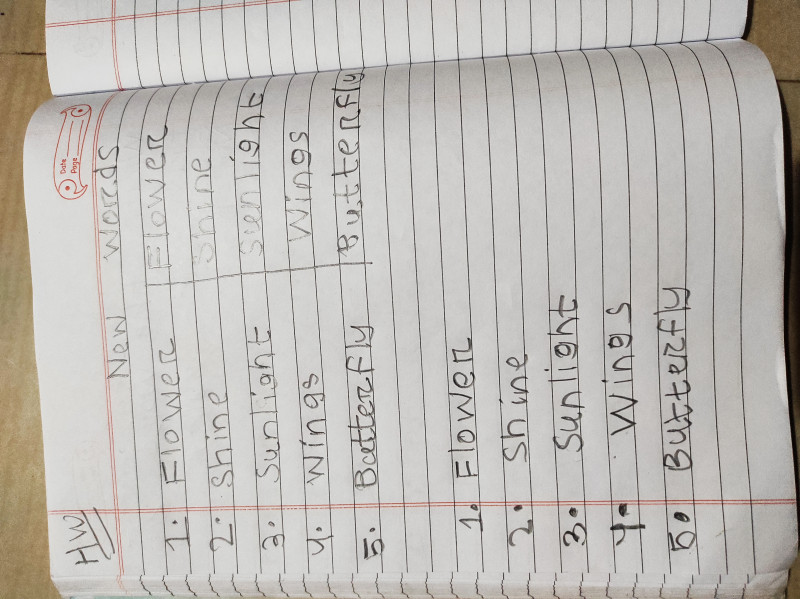 Date
Page
HW
New Words
1. Flower Flower
2. Shine Shine
3. Sunlight Sunlight
4. Wings Wings
5. Batterfly Butterfly
1. Flower
2. Shine
3. Sunlight
4. Wings
5. Butterfly